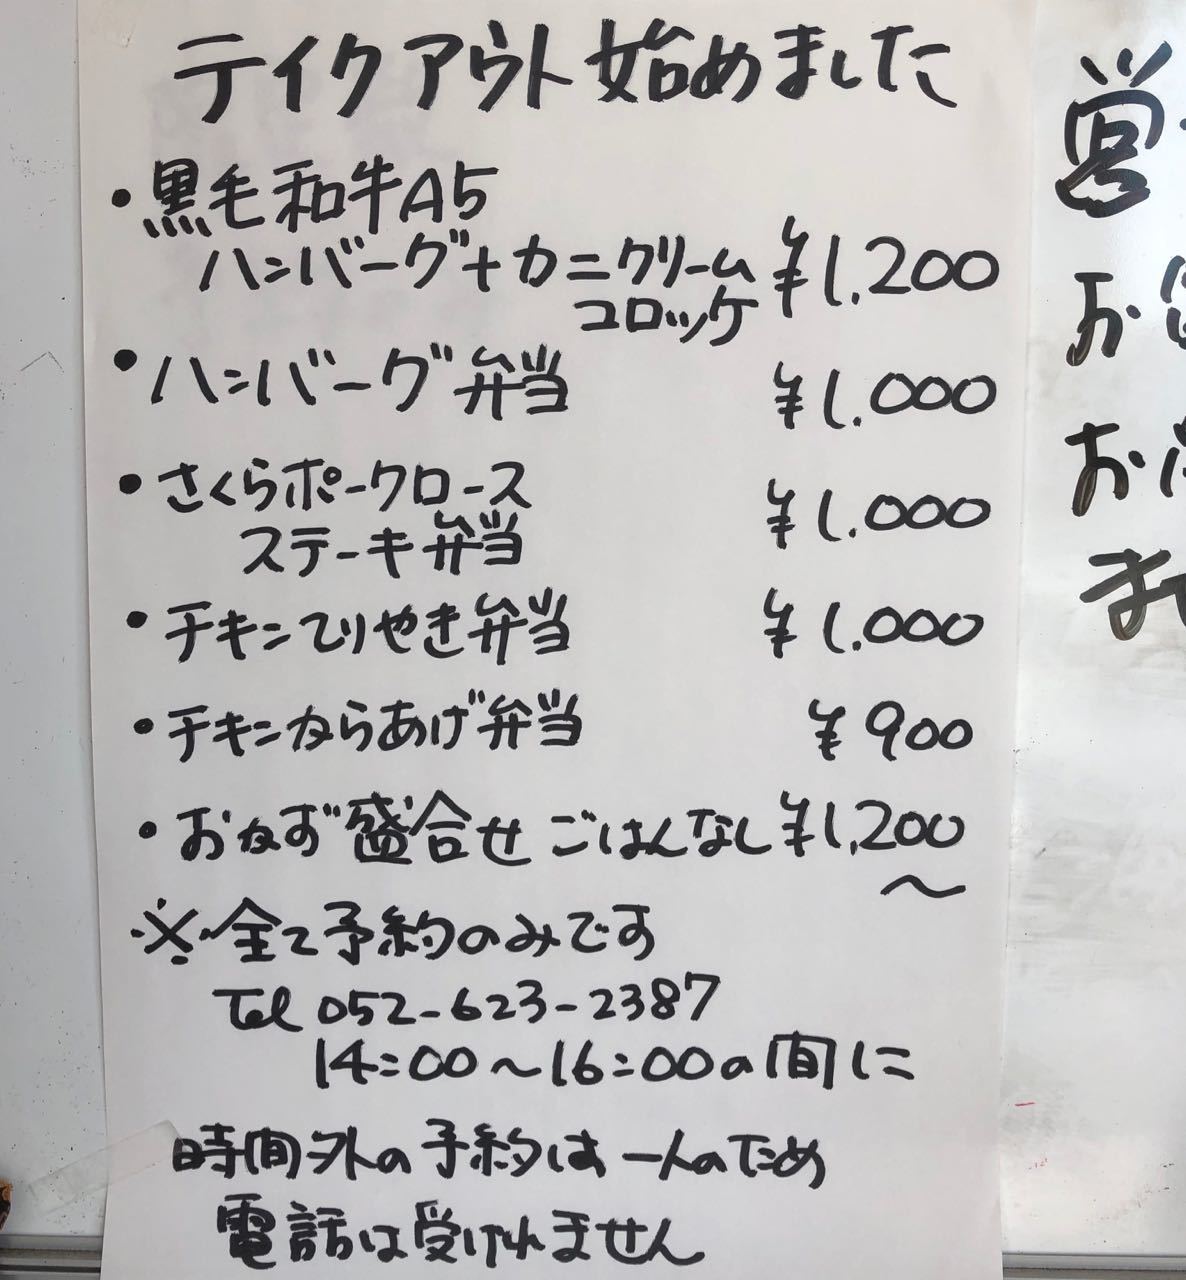 テイクアウト始めました
・黒毛和牛A5
ハンバーグ+カニクリーム ¥1.200
コロッケ
・ハンバーグ弁当 ¥1.000
・さくらポークロース
ステーキ弁当 ¥1.000
・チキンてりやき弁当 ¥1.000
・チキンからあげ弁当 ¥900
・おかず盛合せ ごはんなし ¥1,200
〜
※全て予約のみです
Tel 052-623-2387
14:00〜16:00の間に
時間外の予約は一人のため
電話は受けれません
営
お
お
ま